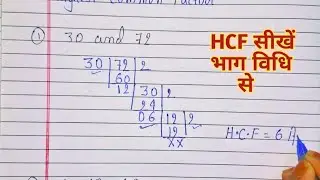 Highest Common Factor
① 30 and 72
30 72 2
60
12 30 2
24
06 12 2
12
××
H.C.F = 6
HCF सीखें
भाग विधि
से